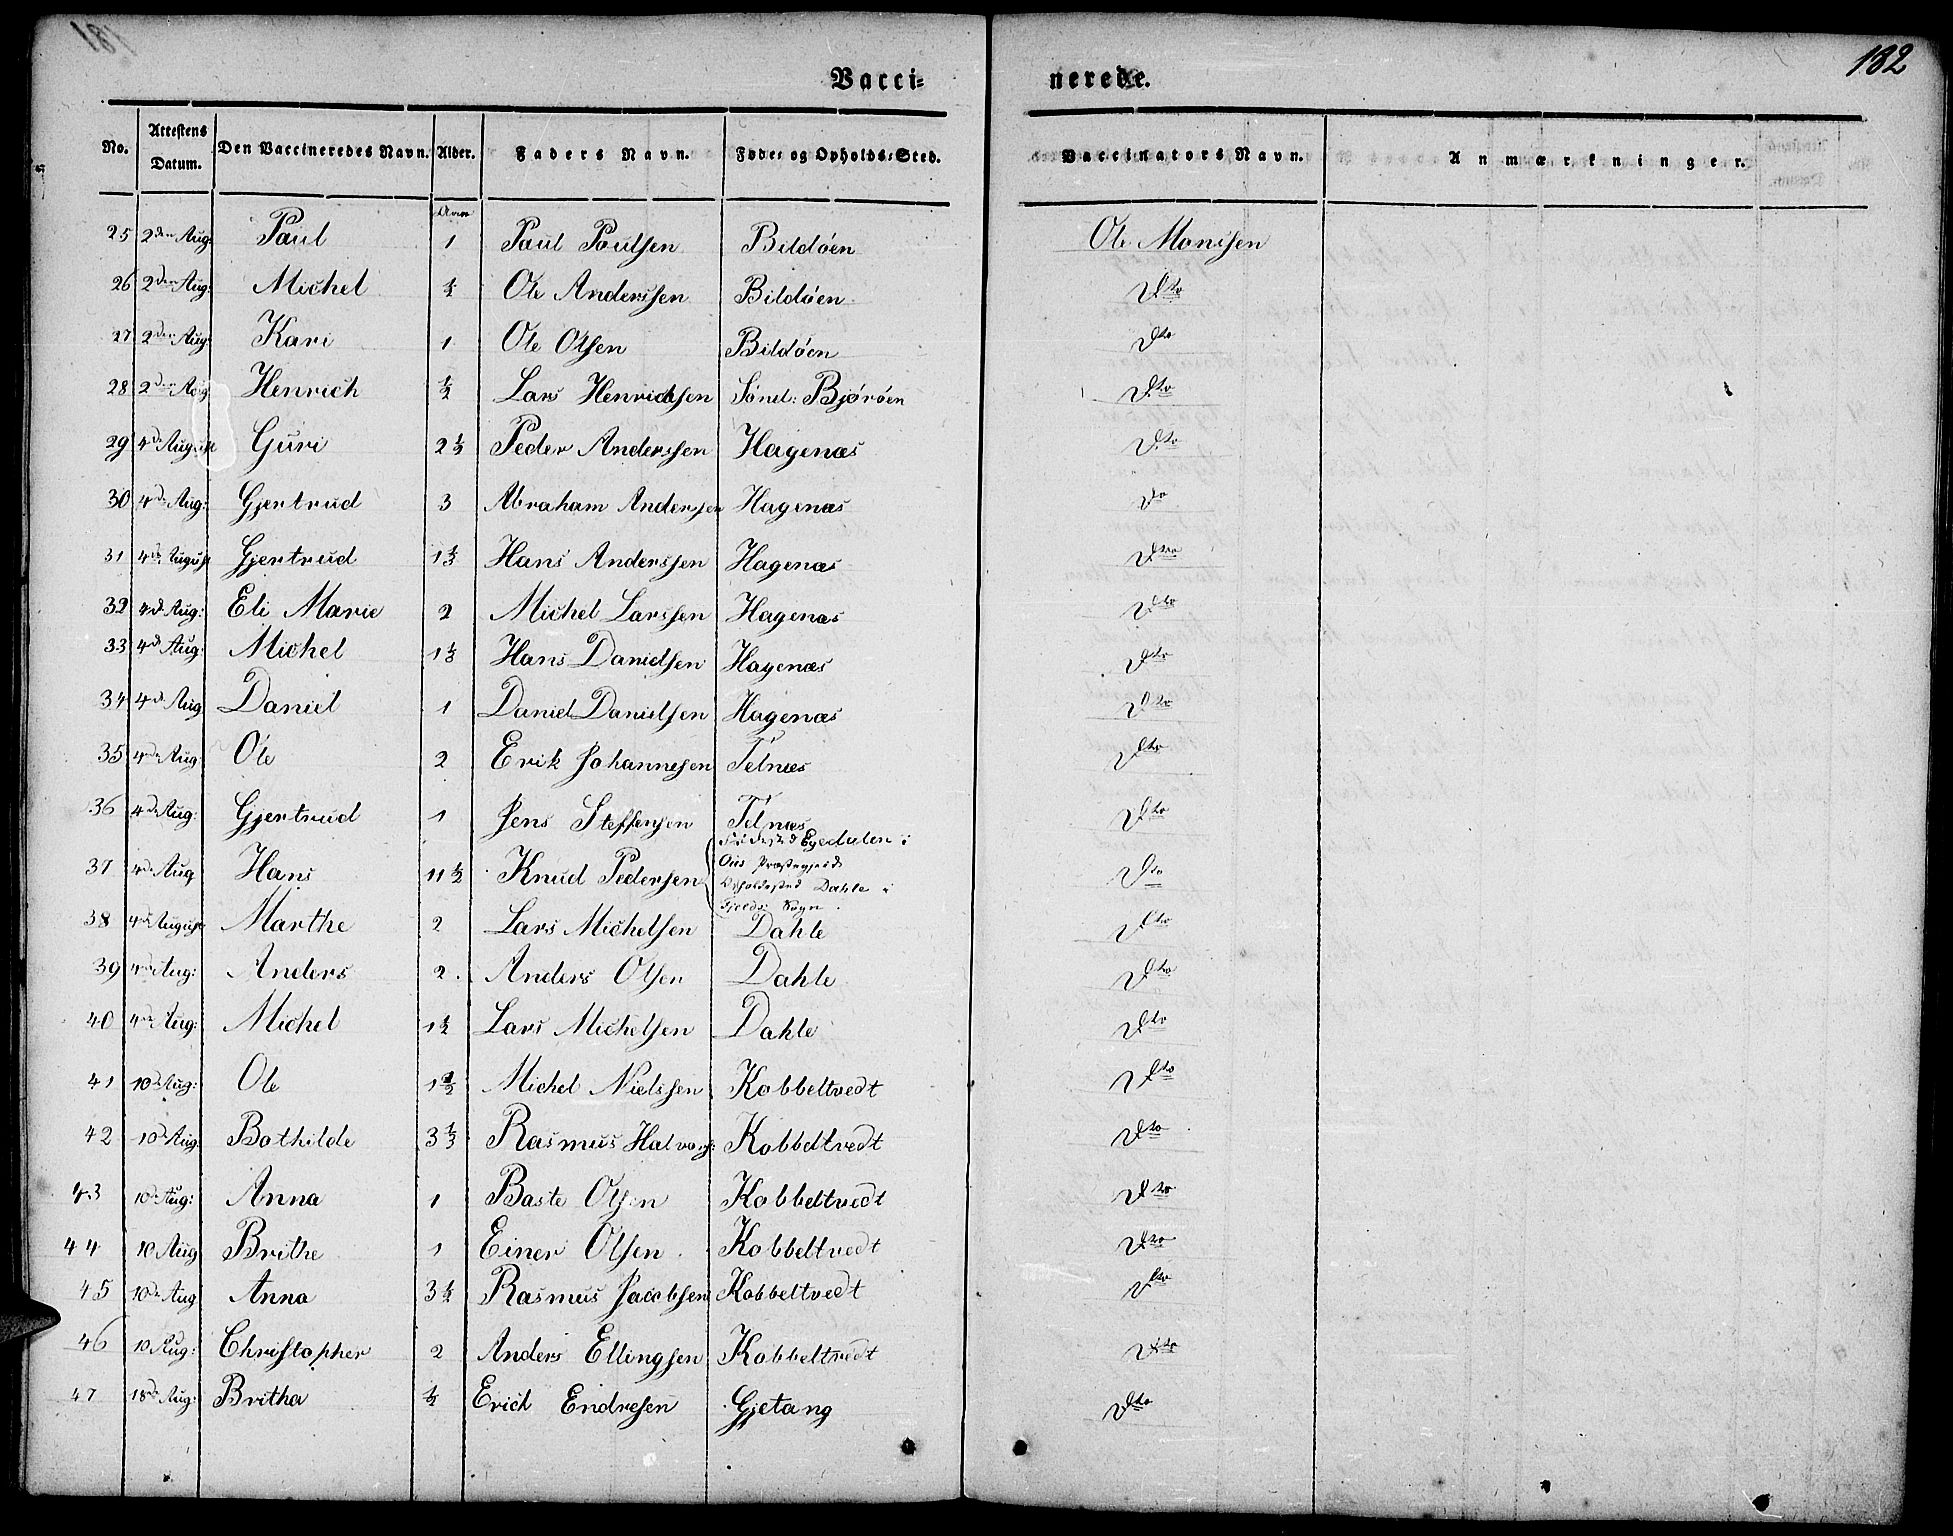 182
Vacci= nerede.
No. Attestens Datum. Den Vaccineredes Navn. Alder. Faders Navn. Føde= og Opholds=Sted. Vaccinators Navn. Anmærkninger.
25 2den Aug: Paul 1 Paul Poulsen Bildöen Ole Monssen
26 2den Aug: Michel ½ Ole Anderssen Bildöen Dto
27 2den Aug: Kari 1 Ole Olsen Bildöen Dto
28 2den Aug Henrich ½ Lars Henrichsen Sönd: Björöen Dto
29 4de August Guri 2½ Peder Anderssen Hagenæs Dto
30 4de Aug: Gjertrud 3 Abraham Andersen Hagenæs Do
31 4de August Gjertrud 1½ Hans Anderssen Hagenæs Dto
32 4de Aug: Eli Marie 2 Michel Larssen Hagenæs Dto
33 4de Aug: Michel 1½ Hans Danielsen Hagenæs Dto
34 4de Aug Daniel 1 Daniel Danielsen Hagenæs Dto
35 4de Aug: Ole 2 Erik Johannesen Telnæs Dto
36 4de Aug: Gjertrud 1 Jens Steffensen Telnæs Dto
37 4de Aug Hans 11½ Knud Pedersen Födested Egedalen i
Ous Præstegjeld
Opholdssted Dahle i
Fjelds Sogn. Dto
38 4de August Marthe 2 Lars Michelsen Dahle Dto
39 4de Aug: Anders 2 Anders Olsen Dahle Dto
40 4de Aug: Michel 1½ Lars Michelsen Dahle Dto
41 10de Aug: Ole 1½ Michel Nielssen Kobbeltvedt Dto
42 10de Aug: Bothilde 3⅓ Rasmus Halvors: Kobbeltvedt Dto
43 10de Aug: Anna 1 Baste Olsen Kobbeltvedt Dto
44 10 Aug Brithe 1 Einer Olsen Kobbeltvedt Dto
45 10de Aug Anna 3½ Rasmus Jacobsen Kobbeltvedt Dto
46 10 Aug: Christopher 2 Anders Ellingsen Kobbeltvedt Dto
47 18de Aug: Britha ½ Erich Endresen Gjetang Dto